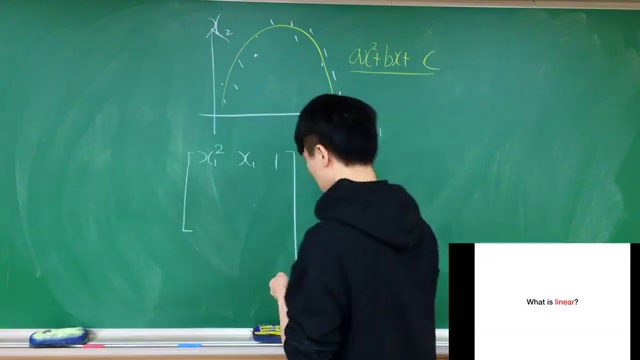 x₂
ax²+bx+ c
x₁² x₁ 1
What is linear?